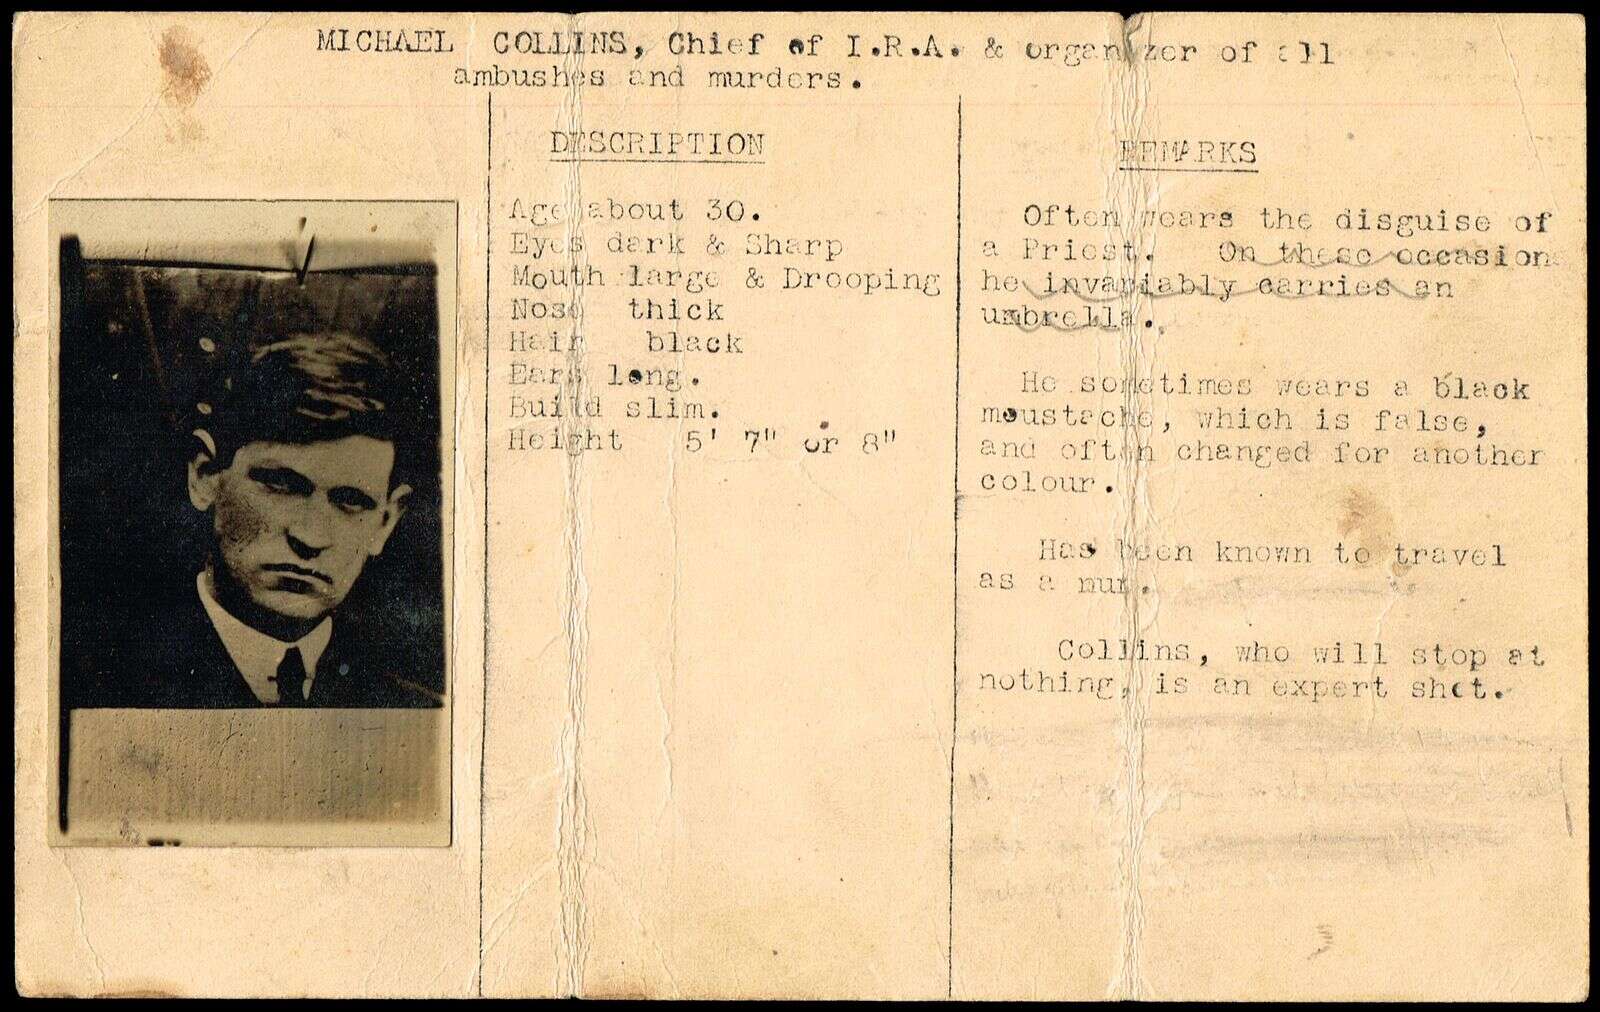 MICHAEL COLLINS, Chief of I.R.A. & organizer of all
ambushes and murders.
DESCRIPTION
Age about 30.
Eyes dark & Sharp
Mouth large & Drooping
Nose thick
Hair black
Ears long.
Build slim.
Height 5' 7" or 8"
REMARKS
Often wears the disguise of
a Priest. On these occasions
he invariably carries an
umbrella.
He sometimes wears a black
moustache, which is false,
and often changed for another
colour.
Has been known to travel
as a nun.
Collins, who will stop at
nothing, is an expert shot.